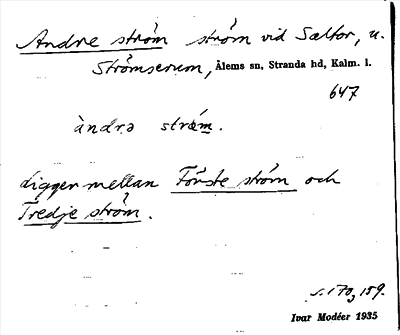 Andre ström ström vid Saltor, u.
Strömserum, Ålems sn, Stranda hd, Kalm. l.
647
àndrə strǿm.
ligger mellan Förste ström och
Tredje ström.
s. 170, 159.
Ivar Modéer 1935